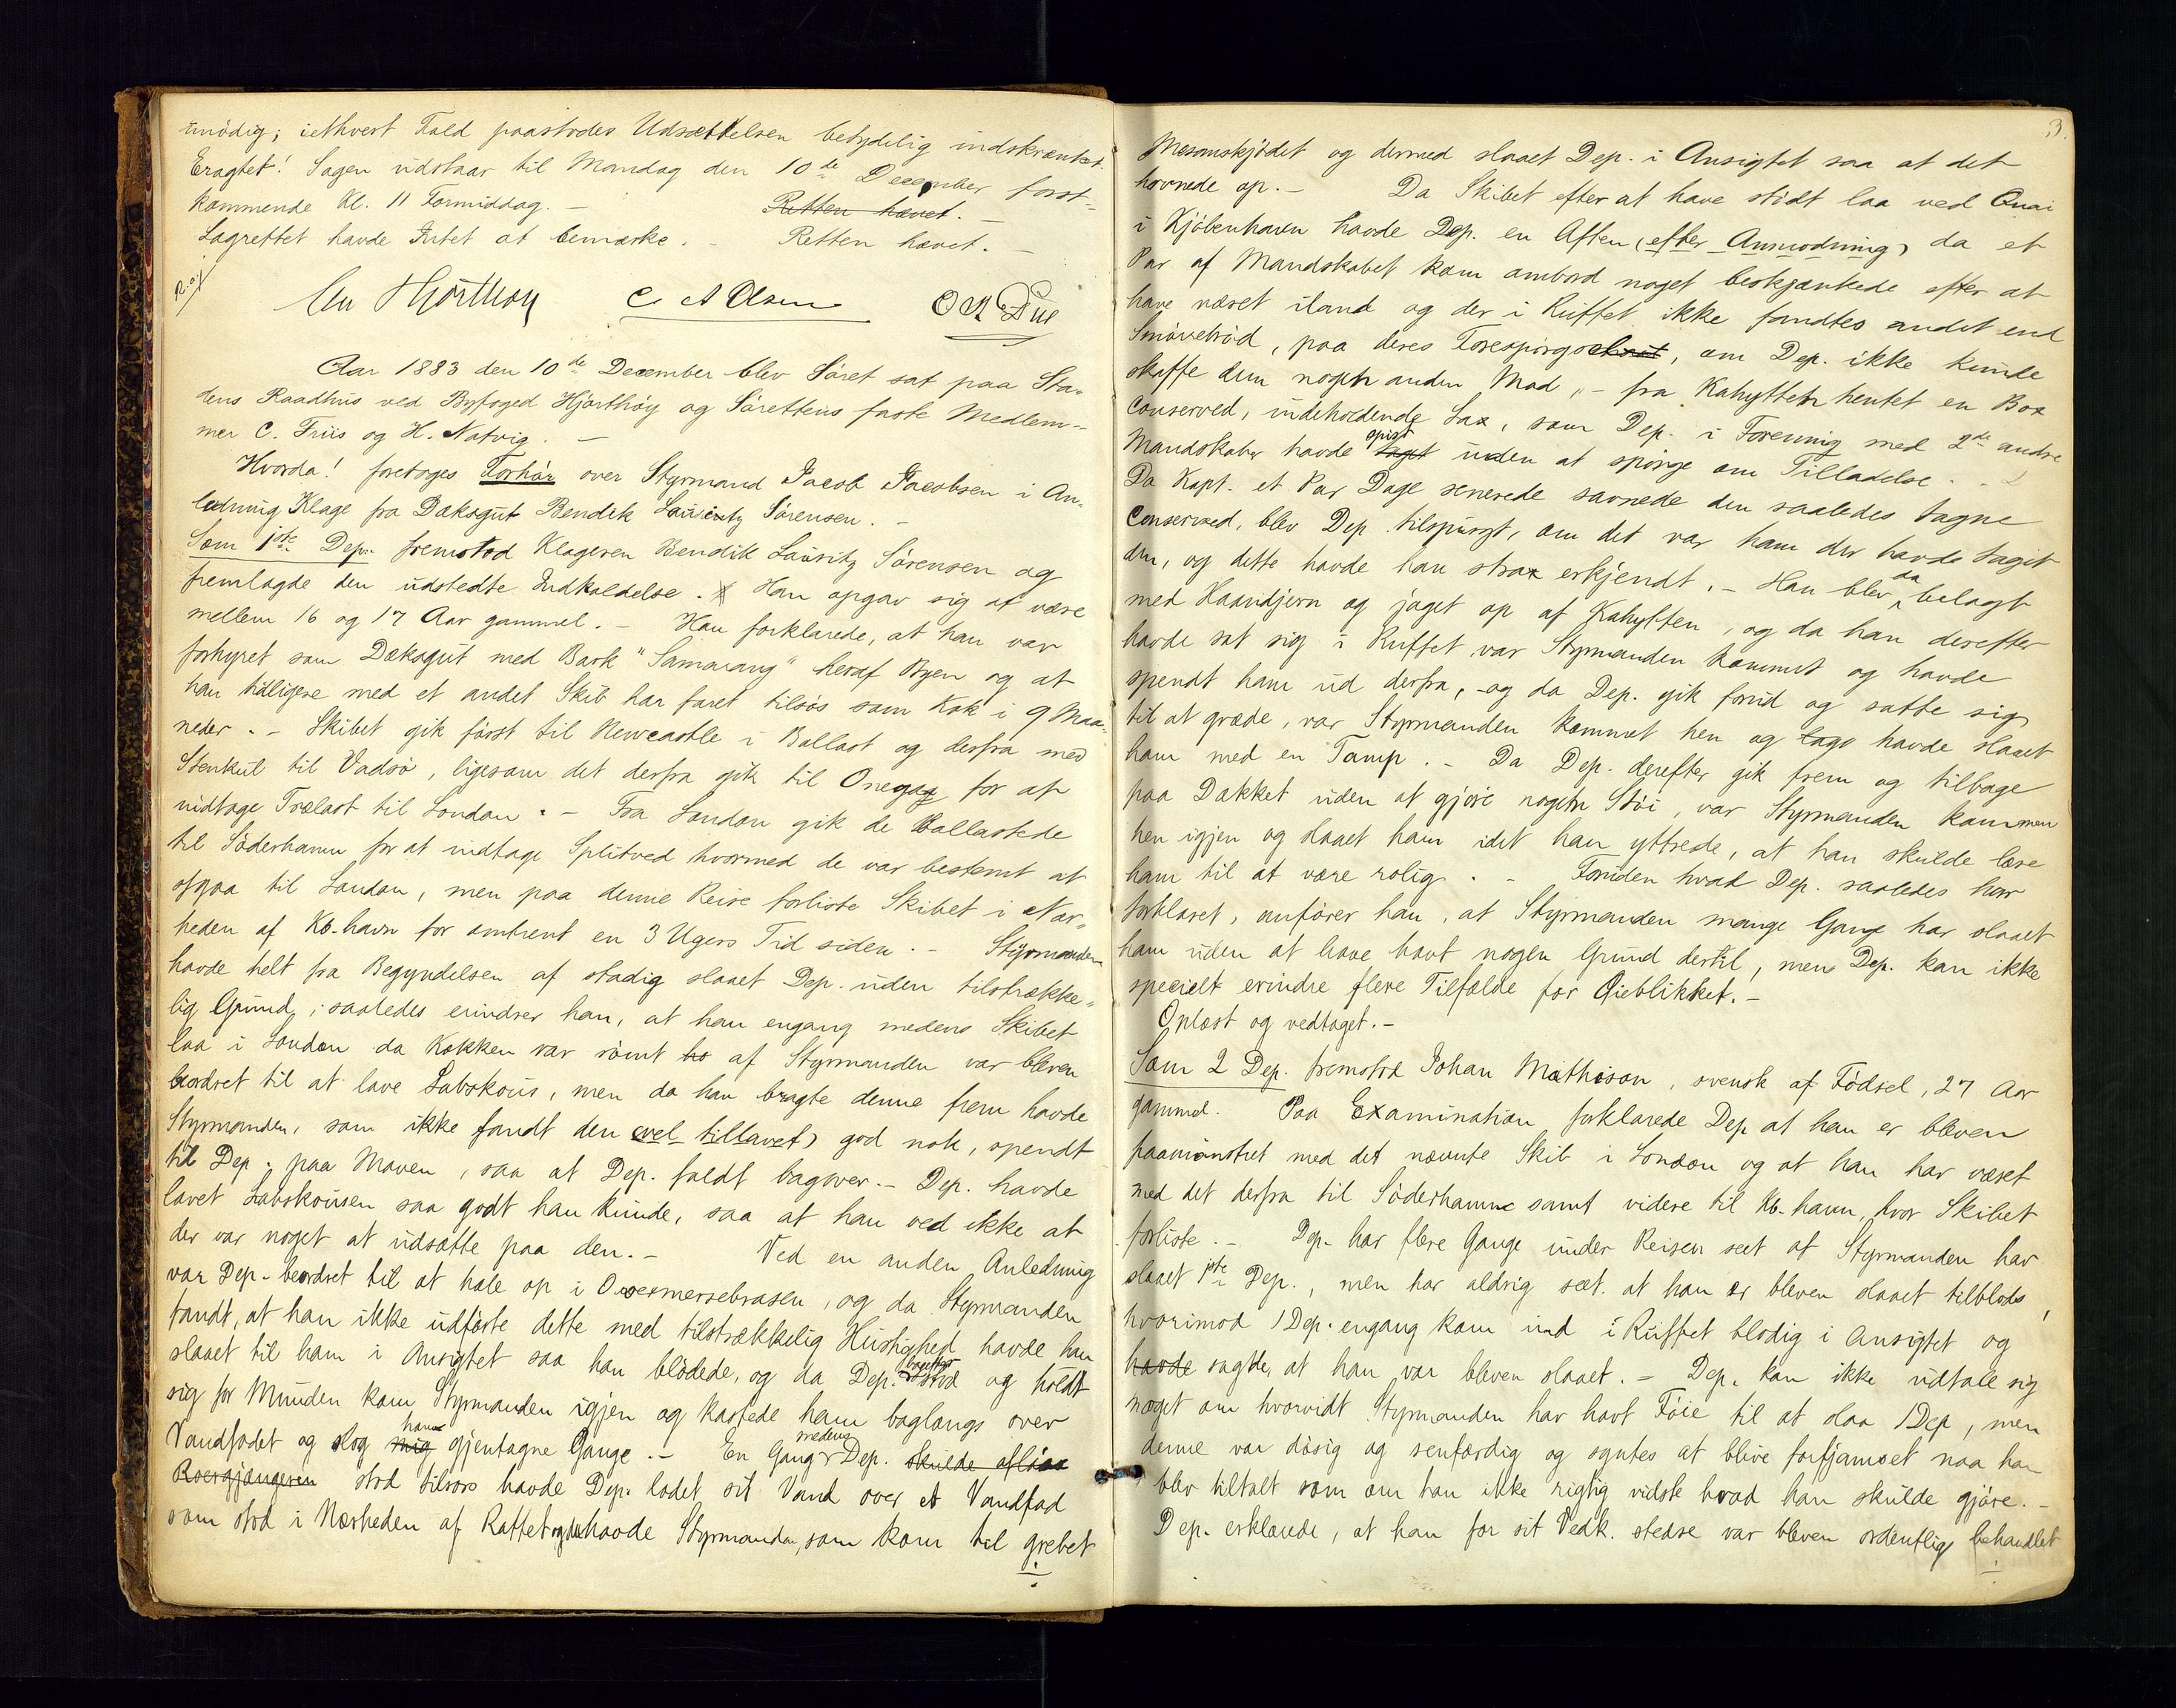 unödig; iethvert Fald paastodes Udsættelsen betydelig indskrænket.
Eragtet! Sagen udstaar til Mandag den 10de December först-
kommende Kl. 11 Formiddag. — Retten hævet. —
Lagrettet havde Intet at bemærke. – Retten hævet. —
Chr Hjorthöy C A Olsen O A Due
Aar 1883 den 10de December blev Söret sat paa Sta-
dens Raadhus ved Byfoged Hjorthöy og Sörettens faste Medlem-
mer C. Friis og H. Natvig. —
Hvorda! foretoges Forhör over Styrmand Jacob Jacobsen i An-
ledning Klage fra Dæksgut Bendik Lauritz Sörensen. –
Som 1ste Dep. fremstod Klageren Bendik Lauritz Sörensen og
fremlagde den udstedte Indkaldelse. Han opgav sig at være
mellem 16 og 17 Aar gammel. – Han forklarede, at han var
forhyret som Dæksgut med Bark "Samarang" heraf Byen og at
han tidligere med et andet Skib har faret tilsös som Kok i 9 Maa-
neder. – Skibet gik först til Newcastle i Ballast og derfra med
Stenkul til Vadsö, ligesom det derfra gik til Onega for at
indtage Trælast til London. – Fra London gik de Ballastede
til Söderhamn for at indtage Splitved hvormed de var bestemt at
afgaa til London, men paa denne Reise forliste Skibet i Nær-
heden af Kb.havn for omtrent en 3 Ugers Tid siden. – Styrmanden
havde helt fra Begyndelsen af stadig slaaet Dep. uden tilstrække-
lig Grund; saaledes erindrer han, at han engang medens Skibet
laa i London da Kokken var römt ho af Styrmanden var bleven
beordret til at lave Labskous, men da han bragte denne frem havde
Styrmanden, som ikke fandt den (vel tillavet) god nok, spendt
til Dep. paa Maven, saa at Dep. faldt bagover. – Dep. havde
lavet Labskousen saa godt han kunde, saa at han ved ikke at
der var noget at udsætte paa den. – Ved en anden Anledning
var Dep. beordret til at hale op i Overmersebrasen, og da Styrmanden
fandt, at han ikke udförte dette med tilstrækkelig Hurtighed havde han
slaaet til ham i Ansigtet saa han blödede, og da Dep. stod og holdt
sig for Munden kom Styrmanden igjen og kastede ham baglængs over
Vandfadet og slog mig ham gjentagne Gange. – En Gang medens Dep. skulde aflöse
Roergjængeren stod tilrors havde Dep. ladet sit Vand over et Vandfad
som stod i Nærheden af Rattet og da havde Styrmanden, som kom til grebet
3.
Mesanskjödet og dermed slaaet Dep. i Ansigtet saa at det
hovnede op. – Da Skibet efter at have stödt laa ved Quai
i Kjöbenhavn havde Dep. en Aften (efter Anmodning) da et
Par af Mandskabet kom ombord noget beskjænkede efter at
have været iland og der i Ruffet ikke fandtes andet end
Smörebröd, paa deres Forespörgsel, om Dep. ikke kunde
skaffe dem nogen anden Mad, – fra Kahytten hentet en Box
Conserved, indeholdende Lax, som Dep. i Forening med 2de andre
Mandskaber havde taget spist uden at spörge om Tilladelse. –
Da Kapt. et Par Dage senerede savnede den saaledes tagne
Conserved, blev Dep. tilspurgt, om det var ham der havde taget
den, og dette havde han strax erkjendt. – Han blev da belagt
med Haandjern og jaget op af Kahytten, og da han derefter
havde sat sig i Ruffet var Styrmanden kommet og havde
spendt ham ud derfra, – og da Dep. gik forud og satte sig
til at græde, var Styrmanden kommet hen og havde slaaet
ham med en Tamp. – Da Dep. derefter gik frem og tilbage
paa Dækket uden at gjöre nogen Stöi, var Styrmanden kommen
hen igjen og slaaet ham idet han yttrede, at han skulde lære
ham til at være rolig. – Foruden hvad Dep. saaledes har
forklaret, anförer han, at Styrmanden mange Gange har slaaet
ham uden at have havt nogen Grund dertil, men Dep. kan ikke
specielt erindre flere Tilfælde for Öieblikket. –
Oplæst og vedtaget. –
Som 2 Dep. fremstod Johan Mathison, svensk af Födsel, 27 Aar
gammel. Paa Examination forklarede Dep at han er bleven
paamönstret med det nævnte Skib i London og at han har været
med det derfra til Söderhamn samt videre til Kb.havn, hvor Skibet
forliste. – Dep. har flere Gange under Reisen seet at Styrmanden har
slaaet 1ste Dep., men har aldrig seet at han er bleven slaaet tilblods,
hvorimod 1 Dep. engang kom ind i Ruffet blodig i Ansigtet og
havde sagde, at han var bleven slaaet. – Dep. kan ikke udtale sig
noget om hvorvidt Styrmanden har havt Föie til at slaa 1 Dep, men
denne var dösig og senfærdig og syntes at blive forfjamset naar han
blev tiltalt som om han ikke rigtig vidste hvad han skulde gjöre. –
Dep. erklærede, at han for sit Vedk. stedse var bleven ordentlig behandlet